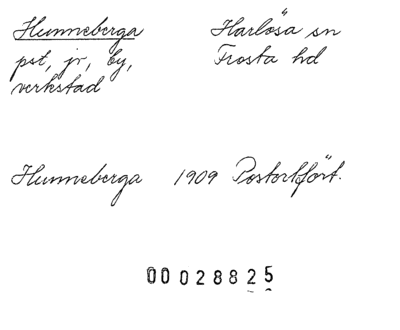 Hunneberga Harlösa sn
pst, jr, by, Frosta hd
verkstad
Hunneberga 1909 Postortfört.
00028825